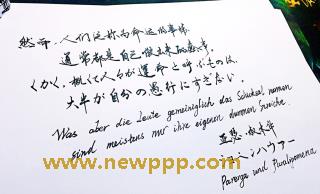 然而，人们泛称为命运的事情，
通常都是自己做出来的蠢事。
くかく、概して人々が運命と呼ぶものは、
大半が自分の愚行にすぎない。
Was aber die Leute gemeiniglich das Schicksal nennen
sind meistens nur ihre eigenen dummen Streiche.
亚瑟·叔本华
ショーペンハウアー
Parerga und Paralipomena
www.newppp.com